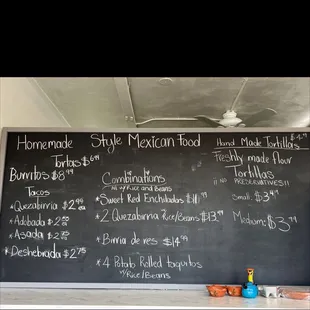 Homemade Style Mexican Food
Tortas $6.99
Burritos $8.99
Tacos
*Quezabirria $2.99
*Adobada $2.50
*Asada $2.75
*Deshebrada $2.75
Combinations
All w/Rice and Beans
*Sweet Red Enchiladas $11.99
*2 Quezabirria Rice/Beans $13.99
*Birria de res $14.99
*4 Potato Rolled taquitos
w/Rice/Beans
Hand Made Tortillas $4.99
Freshly made flour
Tortillas
!! NO PRESERVATIVES!!
Small: $3.49
Medium: $3.99